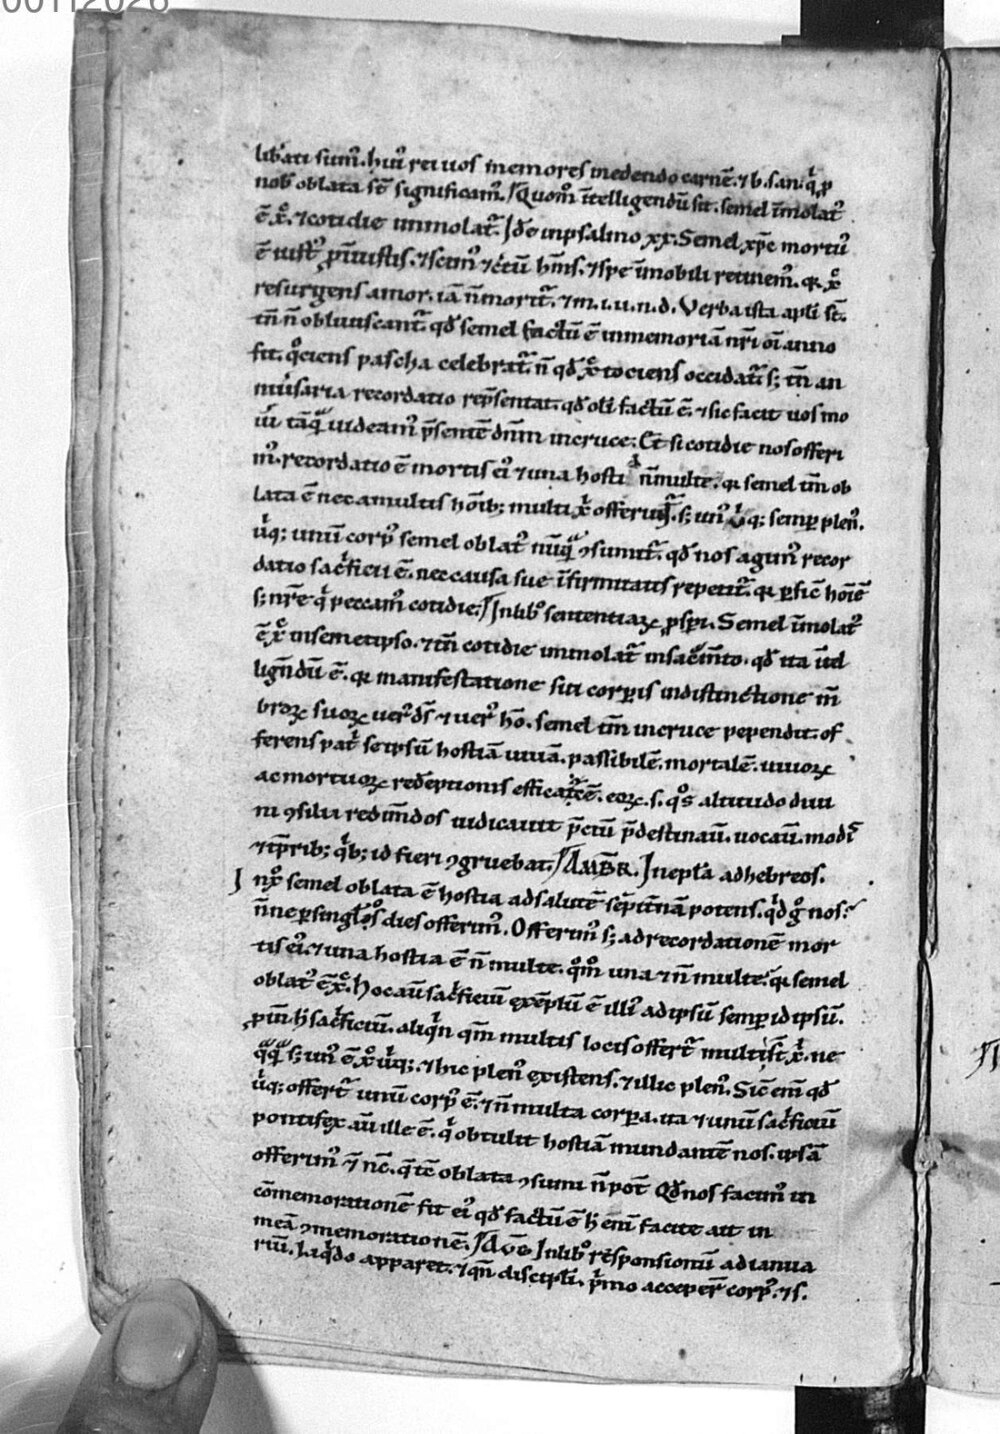 libati sum᷒. hui᷒ rei uos memores inedendo carnē. ⁊ b. san. q̄ p
nob᷒ oblata st̄ significam᷒. Quom̊ ītelligendū sit. semel īmolat᷒
ē xp̊. ⁊ cotidie immolat᷑. Idē inpsalmo xx. Semel xp̄c mortu᷒
ē iust᷒ ꝓ īiustis. ⁊ scim᷒ ⁊ c̄tū hm̄s. ⁊ spe īmobili retinem᷒. qꝛ xp̊
resurgens amor. iā n̄ morit᷑. ⁊ m. i. u. n. d. Verba ista apli st̄.
tn̄ n̄ obliuiscant᷑. qd̄ semel factū ē inmemoriā nr̄i oī anno
fit. q̊ciens pascha celebrat᷑. n̄ qd̄ xp̊ tociens occidat᷑ s; tn̄ an
niūsaria recordatio rep̄sentat. qd̄ oli factū ē. ⁊ sic facit uos mo
ūi tāq̄ uideam᷒ p̄sentē dn̄m incruce. Et si cotidie nos offeri
m᷒. recordatio ē mortis ei᷒ ⁊ una hostia n̄ multe. qꝛ semel tm̄ ob
lata ē nec amultis hōib; multi xp̄i offerunt᷑. s; un᷒ ubiq; semp plen᷒.
ub̄iq; unū corp᷒ semel oblat᷒ nūq̄ ꝯsumit᷑. qd̄ nos agim᷒ recor
datio sac̄ficii ē. nec causa sue īfirmitatis repetit᷑. qꝛ ꝑficit hoīē
s; nr̄e q̄ peccam᷒ cotidie. In lib᷒ sententiaꝝ ꝓsp̄i. Semel īmolat᷒
ē xp̊ in semetipso. ⁊ tn̄ cotidie immolat᷑ insac̄mto. qd̄ ita ītel
ligndū ē. qꝛ manifestatione sui corꝑis indistinctione m̄
broꝝ suoꝝ uer᷒ ds̄ ⁊ uer᷒ hō. semel tm̄ incruce pependit. of
ferens pat̄i seipsū hostiā uiuā. passibilē. mortalē. uiuoꝝ
ac mortuoꝝ redēptionis efficatē. eoꝝ. s. q̊s altitudo diui
ni ꝯsilii redimdos iudicauit p̄ciū p̄destinaū. uocaū. modi᷒
⁊ tp̄rib; q̄b; id fieri ꝯgruebat. AMBR. In epl̄a ad hebreos.
In xp̊ semel oblata ē hostia ad salutē sep̄itnā potens. q̄d g̊ nos:
n̄ne ꝑ singlos dies offerim᷒. Offerim᷒ s; ad recordationē mor
tis ei᷒. ⁊ una hostia ē n̄ multe. q̊m̊ una ⁊ n̄ multe. qꝛ semel
oblat᷒ ē xp̊. hoc aū sac̄ficiū exēplū ē illi᷒ ad ipsū semꝑ idipsū.
ꝓin̄ h̄ sac̄ficiū. aliq̄n qm̄ multis locis offert᷑ multi st̄ xp̄i. ne
q̄q̄ s; un᷒ ē xp̊ ub̄iq; ⁊ hic plen᷒ existens. ⁊ illic plen᷒. Sic eni qd̄
ub̄iq; offert᷑ unū corp᷒ ē. ⁊ n̄ multa corpora. ita ⁊ unū sac̄ficiū
pontifex aū ille ē. q̄ obtulit hostiā mundantē nos. ipsā
offerim᷒ ⁊ nc̄. q̄ tc̄ oblata ꝯsumi n̄ pot̄ Qd̄ nos facim᷒ in
cōmemorationē fit ei᷒ qd̄ factū ē h̄ enī facite ait in
meā ꝯmemorationē. AVG In lib᷒ rēsponsionū ad ianua
riū. Liq̄do apparet. ⁊ qn̄ discipli. p̄mo acceper̄ corp᷒. ⁊ s.